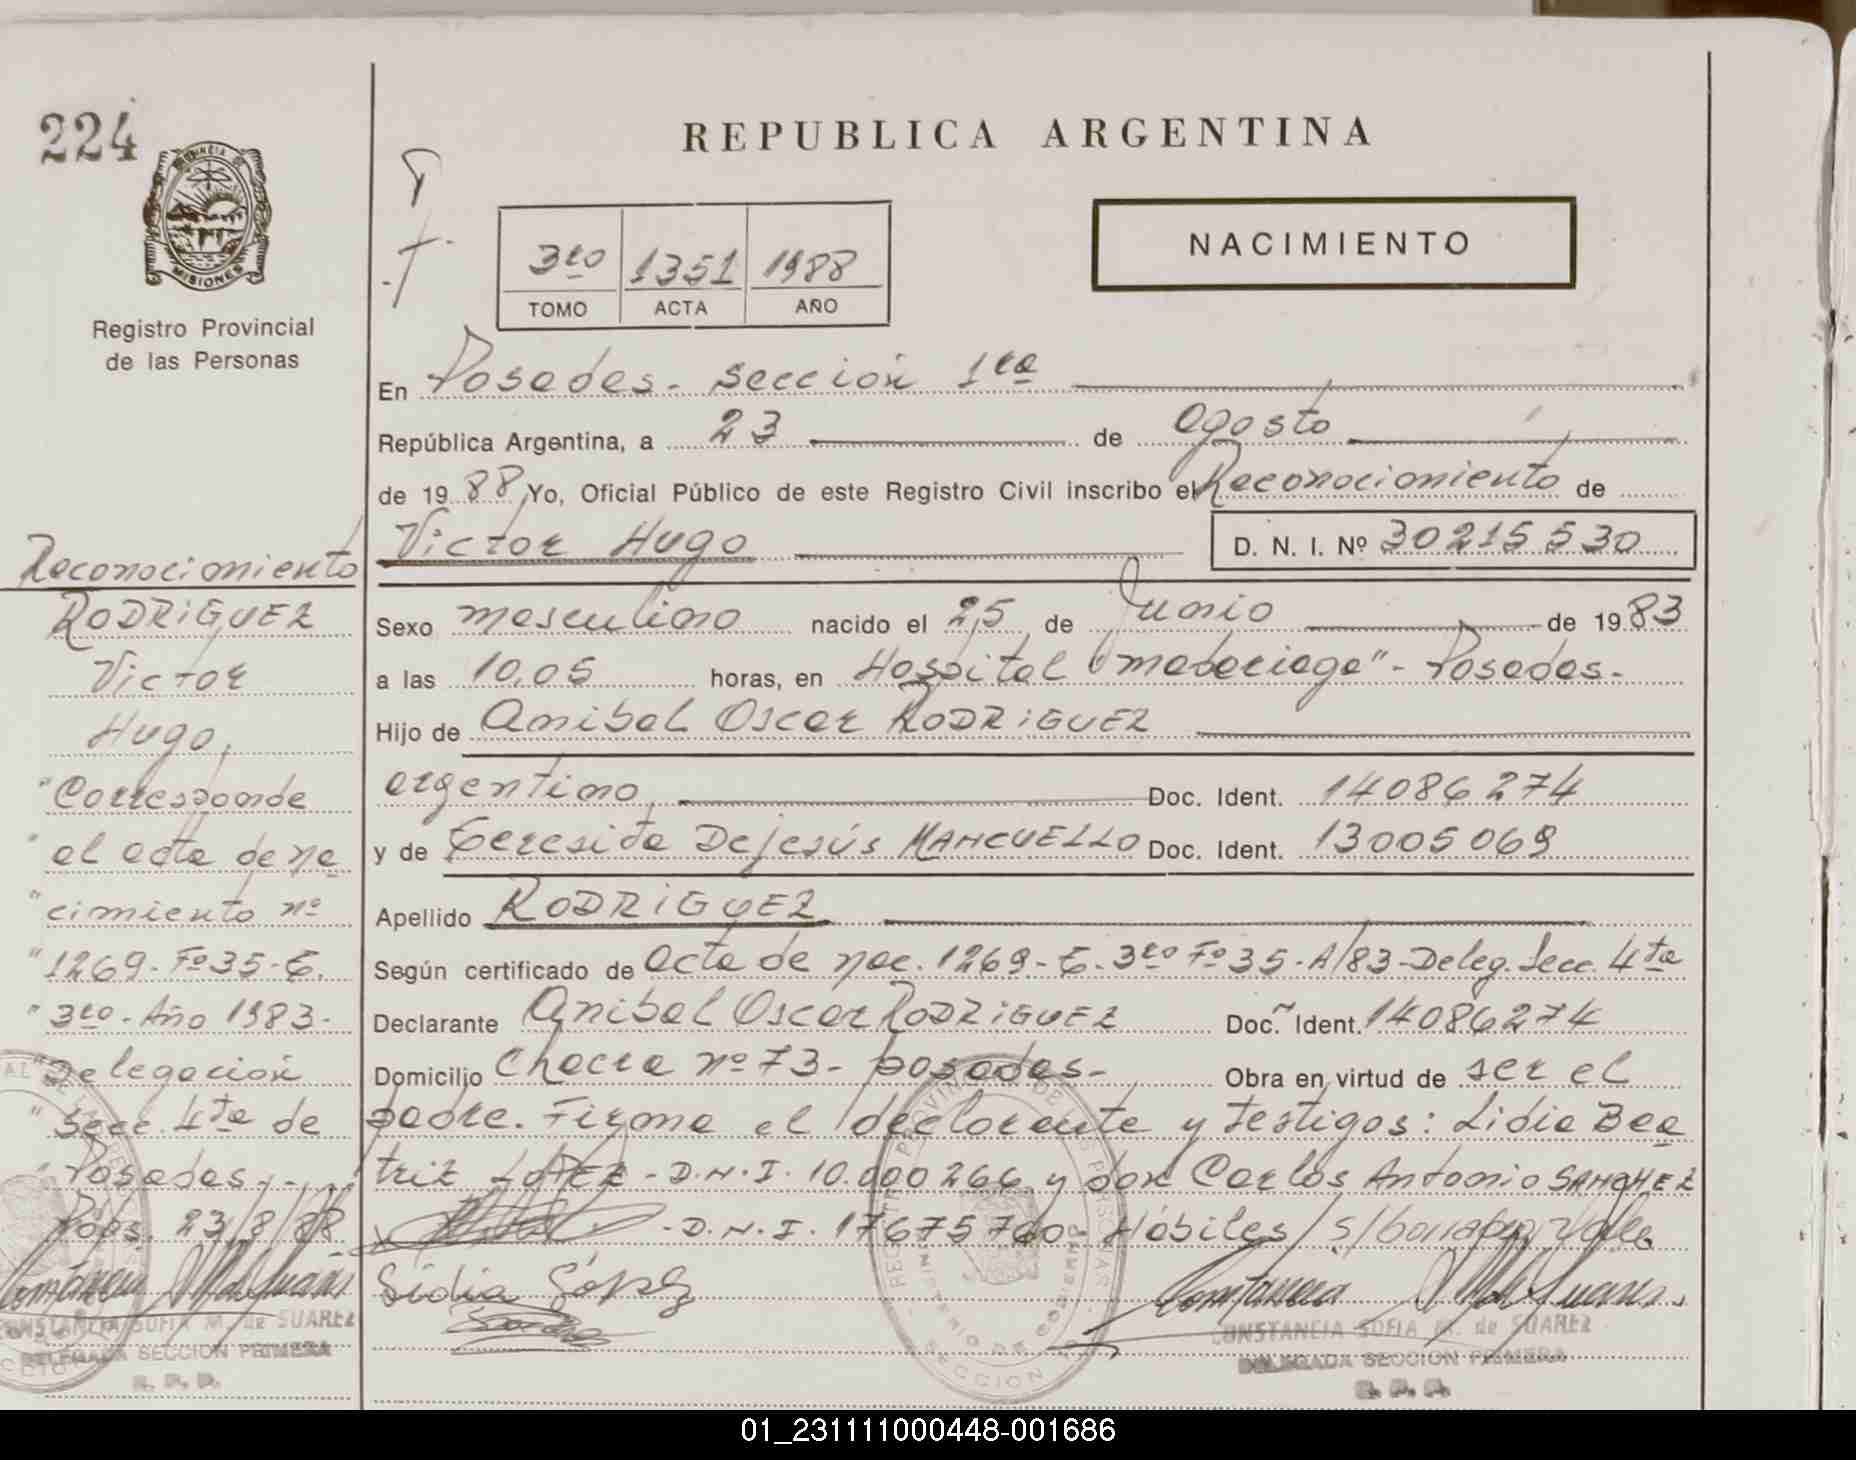 224
PROVINCIA DE
MISIONES
Registro Provincial
de las Personas
Reconocimiento
RODRIGUEZ
Victor
Hugo,
"Corresponde
" al acta de na
"cimiento nº
"1269-Fº35-T.
"3ro-Año 1983-
"Delegación
" Secc. 4ta de
" Posadas--
Pdas. 23/8/88
CONSTANCIA SOFIA M. de SUAREZ
DELEGADA SECCION PRIMERA
R. P. P.
REPUBLICA ARGENTINA
3ro 1351 1988
TOMO ACTA AÑO
NACIMIENTO
En Posadas- Sección 1ra
República Argentina, a 23 de agosto
de 1988 Yo, Oficial Público de este Registro Civil inscribo el Reconocimiento de
Victor Hugo D. N. I. Nº 30215530
Sexo masculino nacido el 25 de Junio de 1983
a las 10,05 horas, en Hospital "madariaga"- Posadas-
Hijo de Anibal Oscar RODRIGUEZ
argentino, Doc. Ident. 14086274
y de Teresita Dejesús MANCUELLO Doc. Ident. 13005069
Apellido RODRIGUEZ
Según certificado de acta de nac. 1269-T. 3ro Fº35-A/83-Deleg. Secc. 4ta
Declarante Anibal Oscar RODRIGUEZ Doc. Ident. 14086274
Domicilio Chacra nº 73- posadas- Obra en virtud de ser el
padre. Firma el declarante y testigos: Lidia Bea
triz LOPEZ-D.N.I. 10.000266 y don Carlos Antonio SANCHEZ
-D.N.I. 17675760- Hábiles/S/borrado/Vale
Lidia López
CONSTANCIA SOFIA M. de SUAREZ
DELEGADA SECCION PRIMERA
R. P. P.
01_231111000448-001686